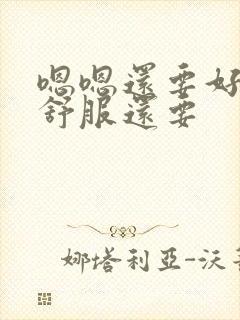 嗯嗯還要好
舒服還要
娜塔利亞-沃